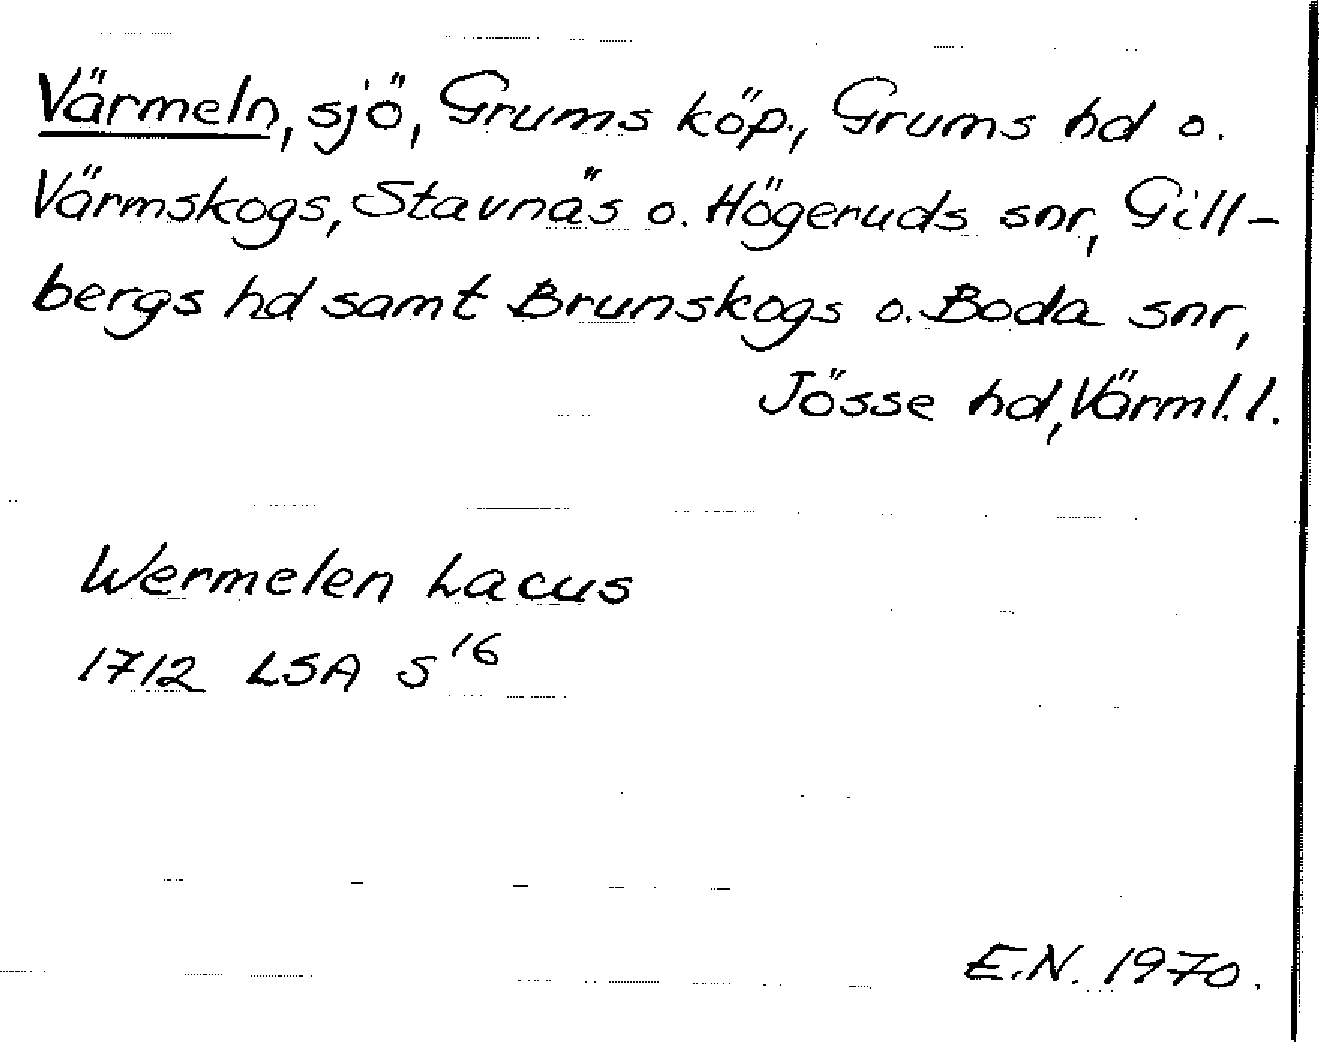 Värmeln, sjö, Grums köp., Grums hd o.
Värmskogs, Stavnäs o. Högeruds snr, Gill-
bergs hd samt Brunskogs o. Boda snr,
Jösse hd, Värml. l.
Wermelen Lacus
1712 LSA S¹⁶
E.N. 1970.